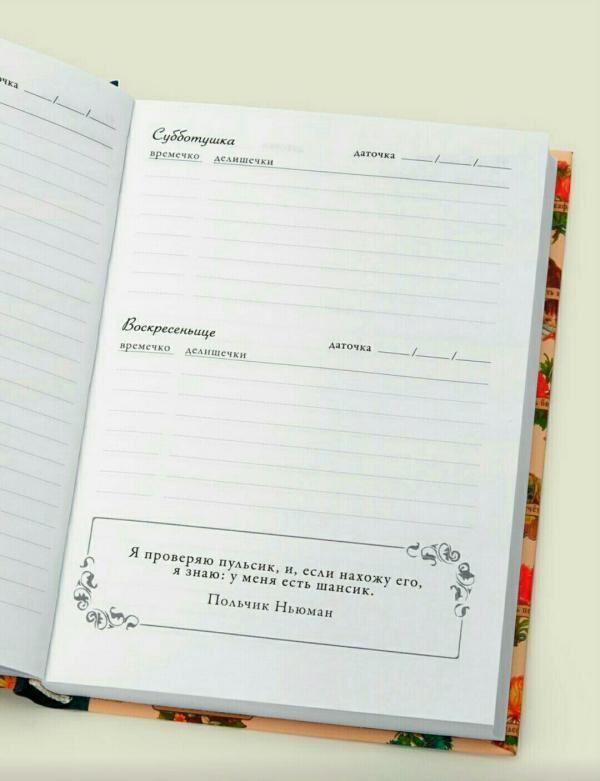 Субботушка
времечко делишечки даточка ____/____/____
Воскресеньице
времечко делишечки даточка ____/____/____
Я проверяю пульсик, и, если нахожу его,
я знаю: у меня есть шансик.
Польчик Ньюман